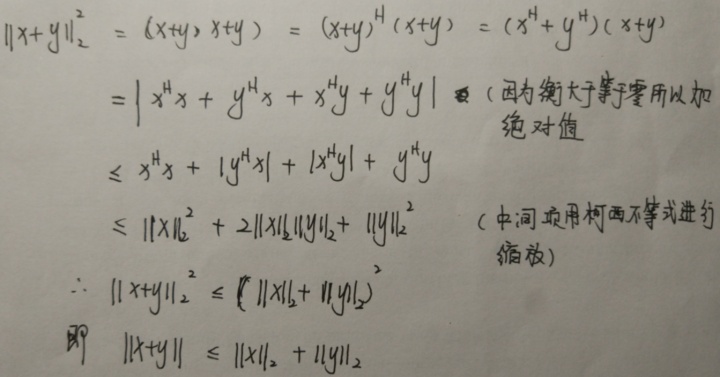 ||x+y||₂² = (x+y, x+y) = (x+y)ᴴ(x+y) = (xᴴ+yᴴ)(x+y)
= |xᴴx + yᴴx + xᴴy + yᴴy| (因为衡大于等于零所以加
绝对值
≤ xᴴx + |yᴴx| + |xᴴy| + yᴴy
≤ ||x||₂² + 2||x||₂||y||₂ + ||y||₂² (中间项用柯西不等式进行
缩放)
∴ ||x+y||₂² ≤ (||x||₂+||y||₂)²
即 ||x+y|| ≤ ||x||₂ + ||y||₂